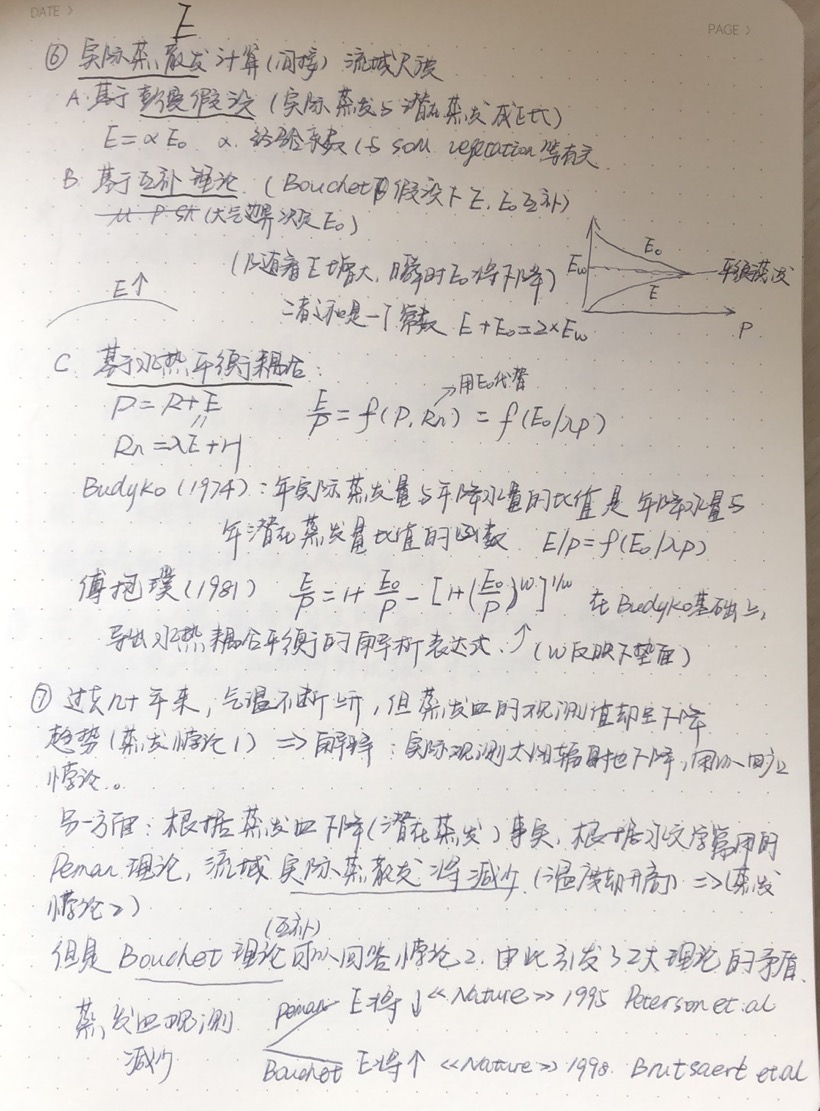 DATE 》
PAGE 》
E
⑥ 实际蒸散发计算(间接) 流域尺度
A. 基于彭曼假设 (实际蒸发与潜在蒸发成正比)
E = α E₀ α. 经验系数 (与 soil vegetation 等有关
B 基于互补理论. (Bouchet 假设下 E, E₀ 互补)
(大气边界决定 E₀)
(随着 E 增大, 瞬时 E₀ 将下降)
E↑
二者之和是一个常数 E + E₀ = 2×Ew
E₀
Ew
平衡蒸发
E
P
C 基于水热平衡耦合:
P = R + E
Rn = λE + H
E/P = f(P, Rn) = f(E₀/λP)
用E₀代替
Budyko (1974): 年实际蒸发量与年降水量的比值是年降水量与
年潜在蒸发量比值的函数. E/P = f(E₀/λP)
傅抱璞 (1981) E/P = 1 + E₀/P − [1 + (E₀/P)^w]^1/w 在Budyko基础上,
导出水热耦合平衡的解析表达式. ↑ (w反映下垫面)
⑦ 过去几十年来, 气温不断上升, 但蒸发皿的观测值却呈下降
趋势 (蒸发悖论1) ⇒ 解释: 实际观测太阳辐射也下降, 可以回应
悖论。
另一方面: 根据蒸发皿下降(潜在蒸发)事实, 根据水文学常用的
Peman 理论, 流域实际蒸散发将减少 (温度却升高) ⇒ (蒸发
悖论2)
(互补)
但是 Bouchet 理论可以回答悖论2. 由此引发了2大理论的矛盾.
蒸发皿观测
减少
Peman E将↓ 《Nature》 1995 Peterson et.al
Bouchet E将↑ 《Nature》 1998. Brutsaert et al